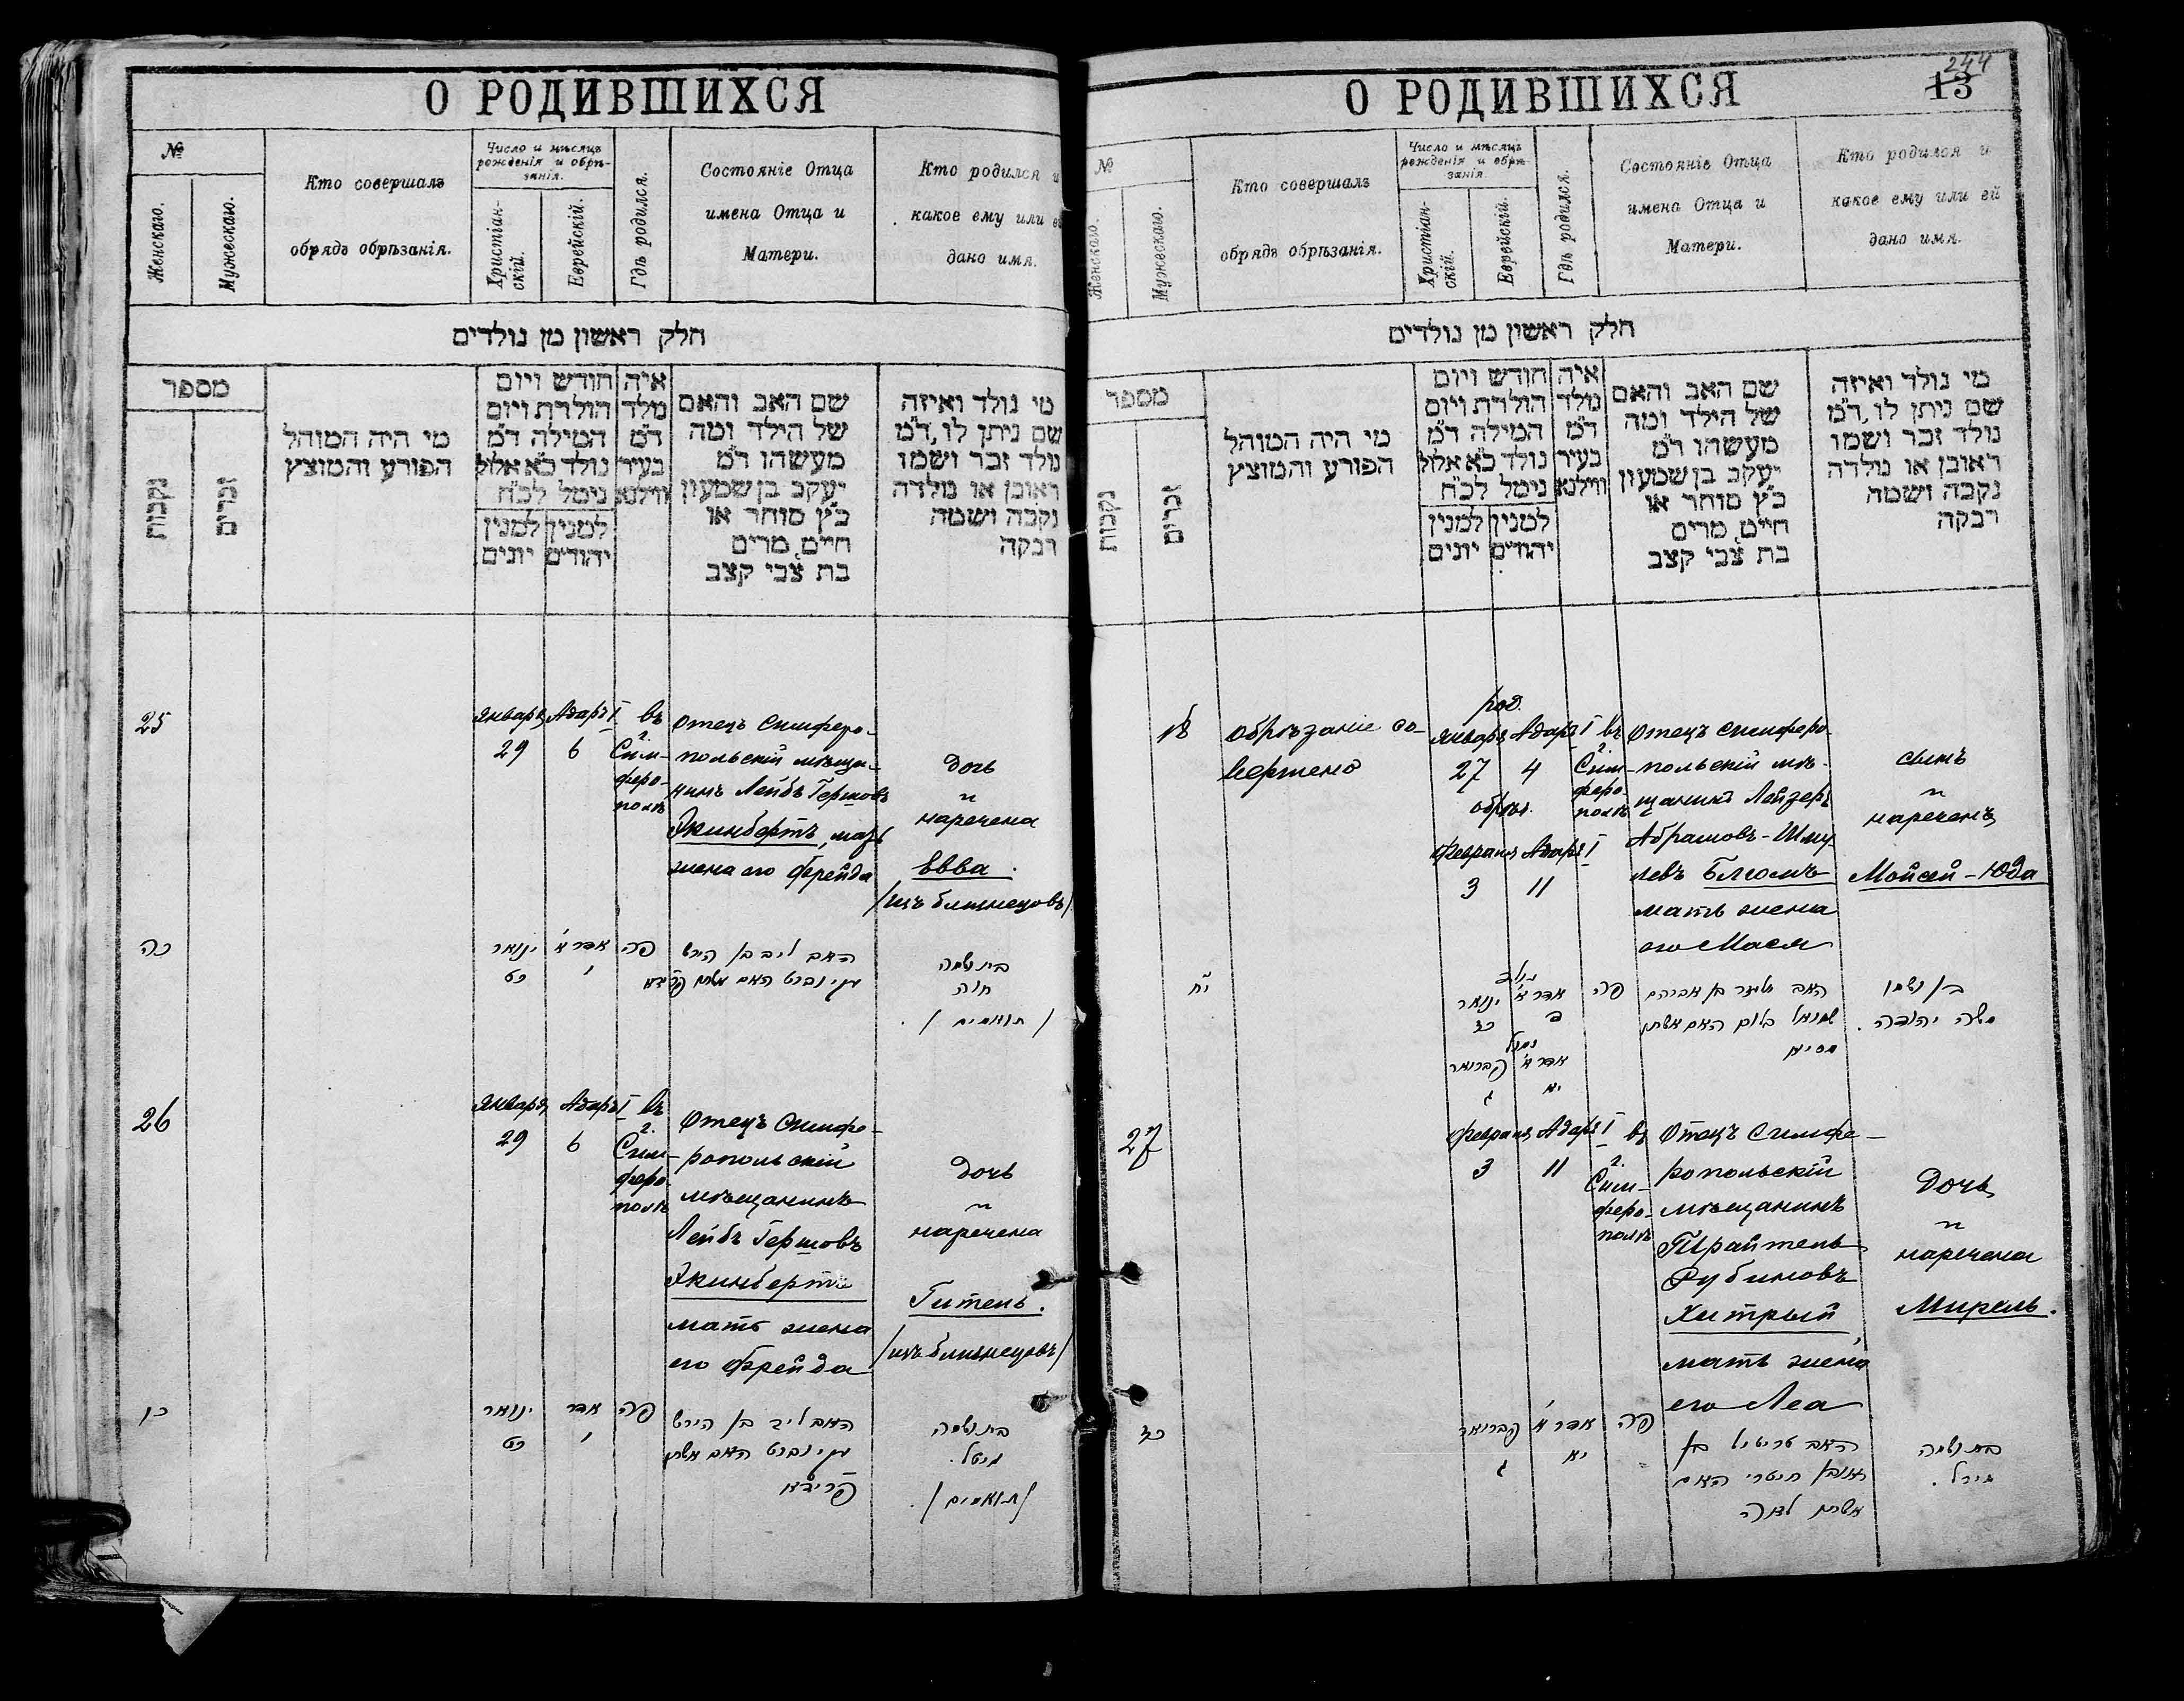 О РОДИВШИХСЯ
№
Женскаго.
Мужескаго.
Кто совершалъ
обрядъ обрѣзанія.
Число и мѣсяцъ
рожденія и обрѣ-
занія.
Христіан-
скій.
Еврейскій.
Гдѣ родился.
Состояніе Отца
имена Отца и
Матери.
Кто родился и
какое ему или ей
дано имя.
חלק ראשון מן נולדים
מספר
נקבות
זכרים
מי היה המוהל
הפורע והמוצץ
חודש ויום
הולדת ויום
המילה ד״מ
נולד כ״א אלול
נימל לכ״ח
למנין למנין
יהודים יונים
איה
מלד
ד״מ
בעיר
ווילנא
שם האב והאם
של הילד ומה
מעשהו ד״מ
יעקב בן שמעון
כ״ץ סוחר או
חיים, מרים
בת צבי קצב
מי נולד ואיזה
שם ניתן לו, ד״מ
נולד זכר ושמו
ראובן או נולדה
נקבה ושמה
רבקה
25
Января
29
Адаръ I
6
въ
г.
Сим-
феро-
полѣ
Отецъ Симферо-
польскій мѣща-
нинъ Лейбъ Гершовъ
Экинбертъ, мать
жена его Фрейда
Дочь
и
наречена
Евва.
/изъ близнецовъ/
כה
ינואר
כט
אדר א׳
ו
פה
האב ליב בן הירש
עקינברט האם אשתו פריידא
בת ושמה
חוה
/ תואמים / .
26
Января
29
Адаръ I
6
въ
г.
Сим-
феро-
полѣ
Отецъ Симфе-
ропольскій
мѣщанинъ
Лейбъ Гершовъ
Экинбертъ
мать жена
его Фрейда
Дочь
и
наречена
Гитель.
/изъ близнецовъ/
כו
ינואר
כט
אדר
ו
פה
האב ליב בן הירש
עקינברט האם אשתו
פריידא
בת ושמה
גיטל.
/תואמים/ .
244
13
О РОДИВШИХСЯ
№
Женскаго.
Мужескаго.
Кто совершалъ
обрядъ обрѣзанія.
Число и мѣсяцъ
рожденія и обрѣ-
занія.
Христіан-
скій.
Еврейскій.
Гдѣ родился.
Состояніе Отца
имена Отца и
Матери.
Кто родился и
какое ему или ей
дано имя.
חלק ראשון מן נולדים
מספר
נקבות
זכרים
מי היה המוהל
הפורע והמוצץ
חודש ויום
הולדת ויום
המילה ד״מ
נולד כ״א אלול
נימל לכ״ח
למנין למנין
יהודים יונים
איה
מלד
ד״מ
בעיר
ווילנא
שם האב והאם
של הילד ומה
מעשהו ד״מ
יעקב בן שמעון
כ״ץ סוחר או
חיים, מרים
בת צבי קצב
מי נולד ואיזה
שם ניתן לו, ד״מ
נולד זכר ושמו
ראובן או נולדה
נקבה ושמה
רבקה
18
Обрѣзаніе со-
вершено
род.
Января
27
Адаръ I
4
обрѣз.
Февраля
3
Адаръ I
11
въ
г.
Сим-
феро-
полѣ
Отецъ Симферо-
польскій мѣ-
щанинъ Лейзеръ
Абрамовъ-Шму-
левъ Блюмъ
мать жена
его Мася
сынъ
и
нареченъ
Мойсей-Юда
יח
נולד
ינואר
כז
אדר א׳
ד
נמול
פברואר
ג
אדר א׳
יא
פה
האב אליעזר בן אברהם
שמואל בלום האם אשתו
מסיא
בן ושמו
משה יהודה.
27
Февраля
3
Адаръ I
11
въ
г.
Сим-
феро-
полѣ
Отецъ Симфе-
ропольскій
мѣщанинъ
Трайтель
Рубиновъ
Хитрый,
мать жена
его Леа
Дочь
и
наречена
Мирель.
כז
פברואר
ג
אדר א׳
יא
פה
האב טרייטיל בן
ראובן חיטרי האם
אשתו לאה
בת ושמה
מירל.